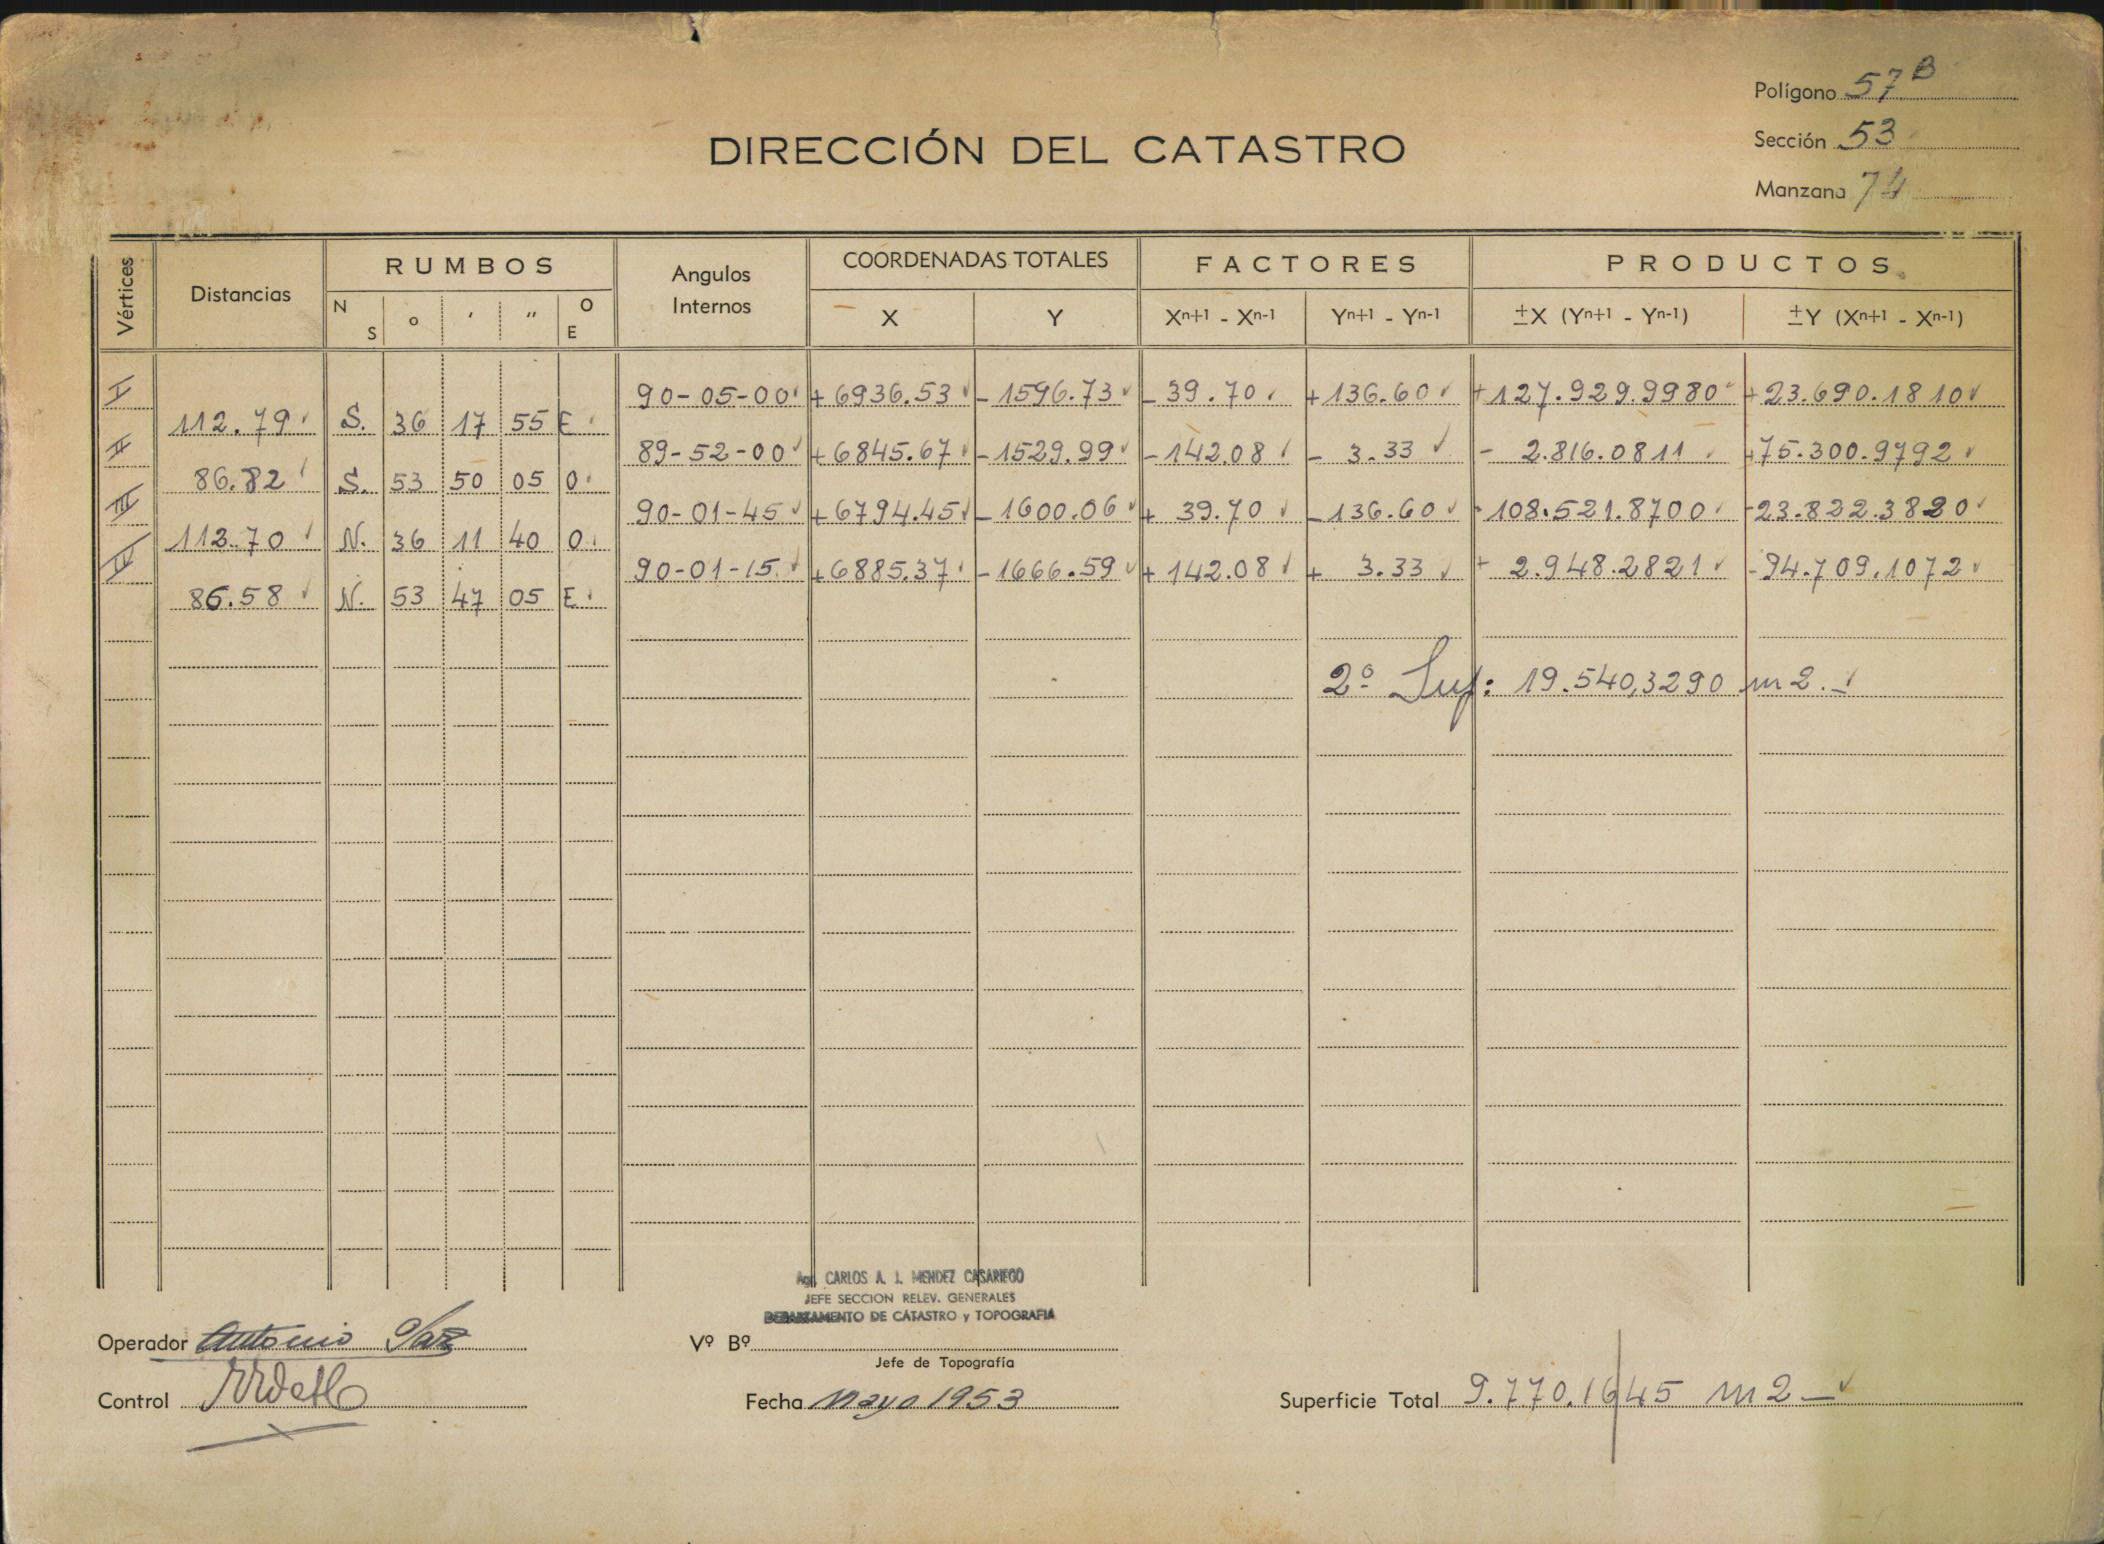 Polígono 57 B
Sección 53
Manzana 74
DIRECCIÓN DEL CATASTRO
Vértices Distancias RUMBOS Angulos Internos COORDENADAS TOTALES FACTORES PRODUCTOS
N S o ′ ″ O E X Y Xn+1 - Xn-1 Yn+1 - Yn-1 ±X (Yn+1 - Yn-1) ±Y (Xn+1 - Xn-1)
I 90-05-00 +6936.53 -1596.73 -39.70 +136.60 +127.929.9980 +23.690.1810
112.79 S. 36 17 55 E
II 89-52-00 +6845.67 -1529.99 -142.08 - 3.33 - 2.816.0811 +75.300.9792
86.82 S. 53 50 05 O
III 90-01-45 +6794.45 -1600.06 + 39.70 -136.60 -108.521.8700 -23.822.3820
112.70 N. 36 11 40 O
IV 90-01-15 +6885.37 -1666.59 +142.08 + 3.33 + 2.948.2821 -94.709.1072
86.58 N. 53 47 05 E
2º Sup: 19.540,3290 m2.-
Agr. CARLOS A. J. MENDEZ CASARIEGO
JEFE SECCION RELEV. GENERALES
DEPARTAMENTO DE CATASTRO y TOPOGRAFIA
Operador Antonio
Vº Bº
Jefe de Topografía
Control
Fecha Mayo 1953
Superficie Total 9.770.1645 m2-